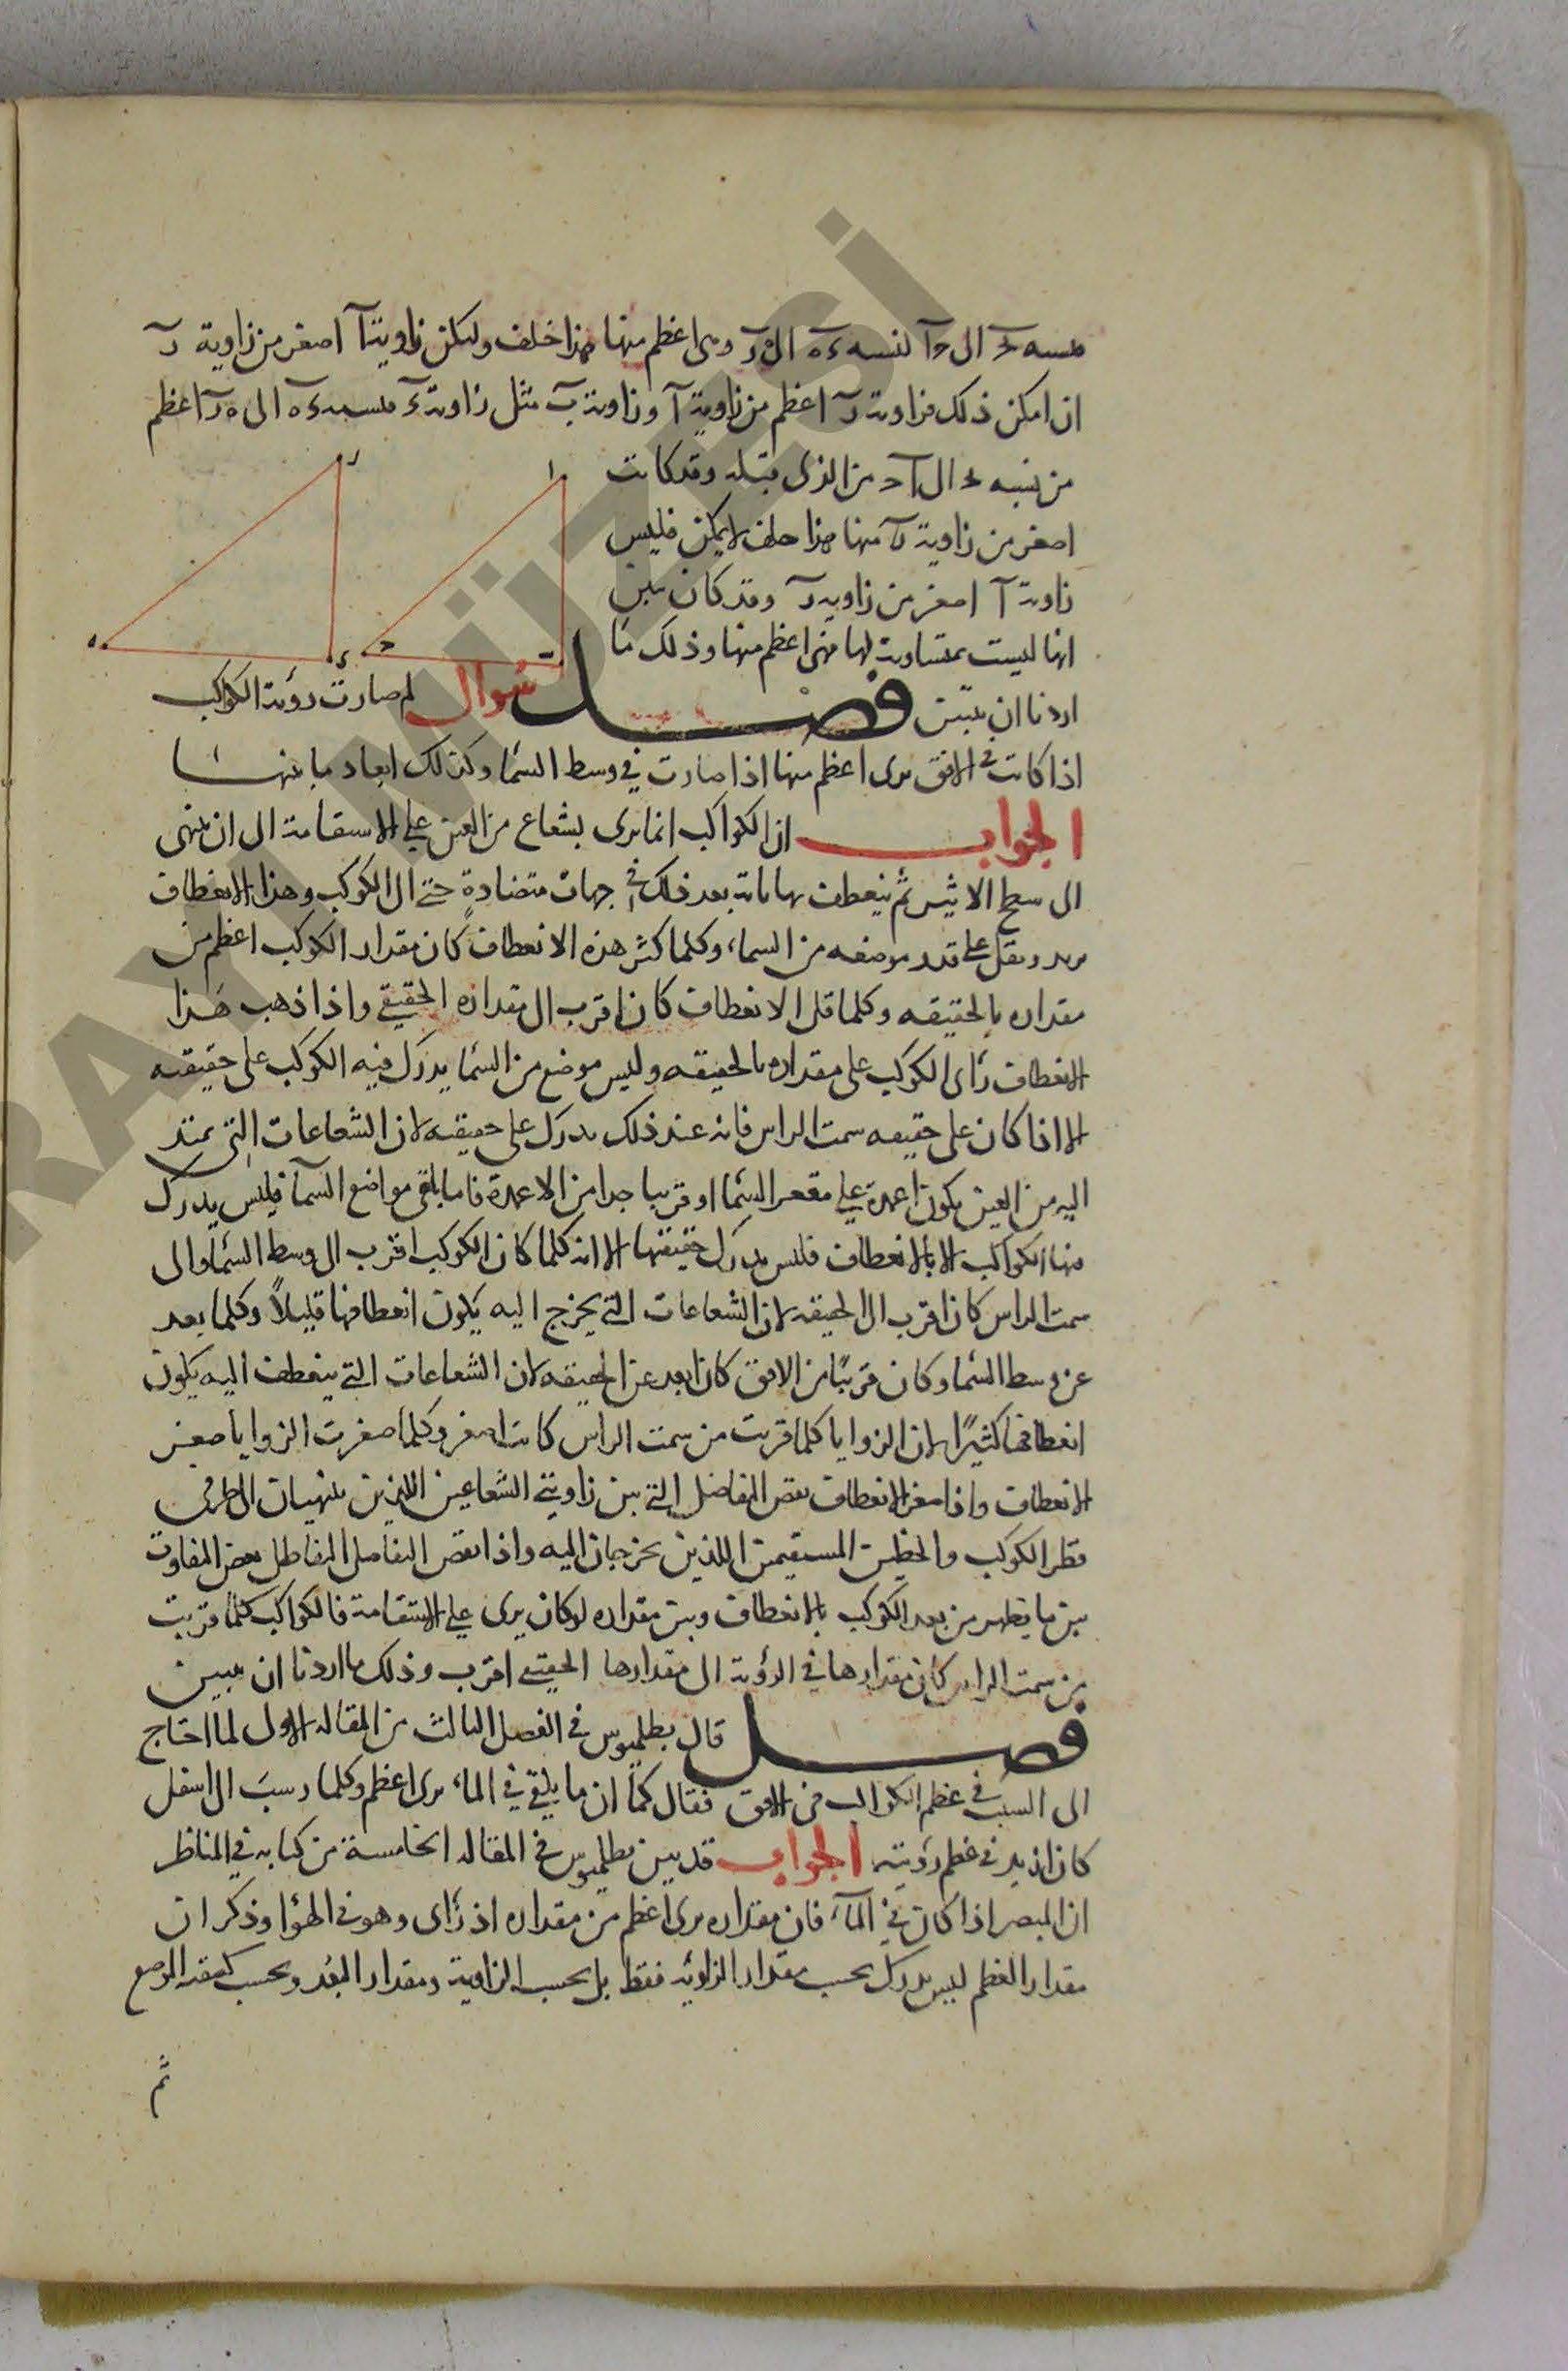 فنسبه حب الى حا لنسبه ءه الى ه ر وهى اعظم منها هذا خلف ولتكن زاوية آ اصغر من زاوية رَ
ان امكن ذلك فزاوية رَ اعظم من زاوية آ وزاوية بَ مثل زاوية ءَ فنسبة ءه الى ه ر اعظم
من نسبه حب الى اح من الذى قبله وقد كانت
اصغر من زاوية رَ منها هذا خلف لايمكن فليس
زاوية آ اصغر من زاويه رَ وقد كان تبين
انها ليست بمتساوية لها فهى اعظم منها وذلك ما
اردنا ان نبين فصل سوال لم صارت رؤية الكواكب
اذا كانت فى الافق يرى اعظم منها اذا صارت فى وسط السما وكذلك ابعاد ما بينها
الجواب ان الكواكب انما يرى بشعاع من العين على الاستقامة الى ان ينتهى
الى سطح الاثير ثم ينعطف بعد ذلك فى جهات متضادة حتى الى الكوكب وهذا الانعطاف
يزيد ويقل على قدر موضعه من السماء وكلما كثر هذه الانعطاف كان مقدار الكوكب اعظم من
مقداره بالحقيقه وكلما قل الانعطاف كان اقرب الى مقداره الحقيقى واذا ذهب هذا
الانعطاف رأى الكوكب على مقداره بالحقيقه وليس موضع من السما يدرك فيه الكوكب على حقيقته
الا اذا كان على حقيقه سمت الراس فانه عند ذلك يدرك على حقيقته لان الشعاعات التى تمتد
اليه من العين يكون اعمدة على مقعر السما او قريبا جدا من الاعمدة فاما باقى مواضع السمآ فليس يدرك
منها الكواكب الا بالانعطاف فليس يدرك حقيقتها الا انه كلما كان الكوكب اقرب الى وسط السما والى
سمت الراس كان اقرب الى الحقيقه لان الشعاعات التى يخرج اليه يكون انعطافها قليلاً وكلما بعد
عن وسط السما وكان قريبًا من الافق كان ابعد عن الحقيقه لان الشعاعات التى ينعطف اليه يكون
انعطافها كثيرًا لان الزوايا كلما قربت من سمت الراس كانت اصغر وكلما صغرت الزوايا صغر
الانعطاف واذا صغر الانعطاف نقص التفاضل التى بين زاويتى الشعاعين اللذين ينتهيان الى طرفى
قطر الكوكب والخطين المستقيمين اللذين يخرجان اليه واذا نقص التفاضل نقص التفاوت
بين ما يظهر من بعد الكوكب بالانعطاف وبين مقداره لو كان يرى على الاستقامة فالكواكب كلما قربت
من سمت الراس كان مقدارها فى الرؤية الى مقدارها الحقيقى اقرب وذلك ما اردنا ان نبين
فصل قال بطلميوس فى الفصل الثالث من المقاله الاولى لما احتاج
الى السبب فى عظم الكواكب فى الافق فقال كما ان ما يلقى فى الماء يرى اعظم وكلما رسبَ الى اسفل
كان ازيد فى عظم رؤيته الجواب قد بين بطلميوس فى المقاله الخامسة من كتابه فى المناظر
ان المبصر اذا كان فى المآء فان مقداره يرى اعظم من مقداره اذ رأى وهو فى الهوا وذكر ان
مقدار العظم ليس يدرك بحسب مقدار الزاويه فقط بل بحسب الزاوية ومقدار البُعد وبحسب كيفية الوضع
ثم